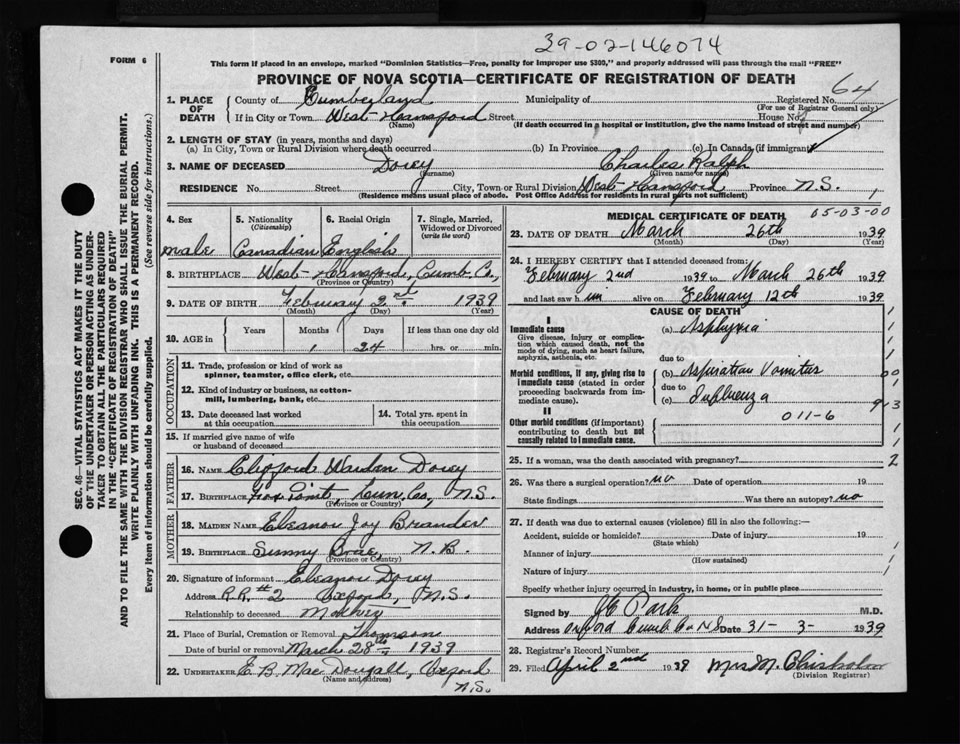 39-02-146074
FORM 6
This form if placed in an envelope, marked "Dominion Statistics—Free, penalty for improper use $300," and properly addressed will pass through the mail "FREE"
PROVINCE OF NOVA SCOTIA—CERTIFICATE OF REGISTRATION OF DEATH
64
1. PLACE OF DEATH County of Cumberland Municipality of Registered No. (For use of Registrar General only)
If in City or Town West Hansford Street House No.
(Name) (If death occurred in a hospital or institution, give the name instead of street and number)
2. LENGTH OF STAY (in years, months and days)
(a) In City, Town or Rural Division where death occurred (b) In Province (c) In Canada (if immigrant)
3. NAME OF DECEASED Dorey Charles Ralph
(Surname) (Given name or names)
RESIDENCE No. Street City, Town or Rural Division West Hansford Province N.S. 1
(Residence means usual place of abode. Post Office Address for residents in rural parts not sufficient)
4. Sex 5. Nationality (Citizenship) 6. Racial Origin 7. Single, Married, Widowed or Divorced (write the word)
male Canadian English
8. BIRTHPLACE West Hansford, Cumb. Co.,
(Province or Country)
9. DATE OF BIRTH February 2nd 1939
(Month) (Day) (Year)
10. AGE in Years Months Days If less than one day old
1 24 hrs. or min.
OCCUPATION
11. Trade, profession or kind of work as spinner, teamster, office clerk, etc.
12. Kind of industry or business, as cotton-mill, lumbering, bank, etc.
13. Date deceased last worked at this occupation 14. Total yrs. spent in this occupation
15. If married give name of wife or husband of deceased
FATHER
16. NAME Clifford Warden Dorey
17. BIRTHPLACE Fox Point, Lun. Co., N.S.
(Province or Country)
MOTHER
18. MAIDEN NAME Eleanor Joy Brander
19. BIRTHPLACE Sunny Brae, N.B.
(Province or Country)
20. Signature of informant Eleanor Dorey
Address R.R. #2 Oxford, N.S.
Relationship to deceased Mother
21. Place of Burial, Cremation or Removal Thomson
Date of burial or removal March 28th 1939
22. UNDERTAKER E. B. MacDougall, Oxford N.S.
(Name and address)
MEDICAL CERTIFICATE OF DEATH 05-03-00
23. DATE OF DEATH March 26th 1939
(Month) (Day) (Year)
24. I HEREBY CERTIFY that I attended deceased from:
February 2nd 1939 to March 26th 1939
and last saw him alive on February 12th 1939
CAUSE OF DEATH
I
Immediate cause (a) Asphyxia
Give disease, injury or complication which caused death, not the mode of dying, such as heart failure, asphyxia, asthenia, etc.
due to
Morbid conditions, if any, giving rise to immediate cause (stated in order proceeding backwards from immediate cause).
(b) Aspiration Vomitus
due to
(c) Influenza
II
Other morbid conditions (if important) contributing to death but not causally related to immediate cause.
011-6
25. If a woman, was the death associated with pregnancy? 2
26. Was there a surgical operation? no Date of operation 19
State findings Was there an autopsy? no
27. If death was due to external causes (violence) fill in also the following:—
Accident, suicide or homicide? Date of injury 19
(State which)
Manner of injury
(How sustained)
Nature of injury
Specify whether injury occurred in industry, in home, or in public place
Signed by Park M.D.
Address Oxford Cumb Co NS Date 31-3-1939
28. Registrar's Record Number
29. Filed April 2nd 1939 Mrs M. Chisholm
(Division Registrar)
SEC. 46—VITAL STATISTICS ACT MAKES IT THE DUTY
OF THE UNDERTAKER OR PERSON ACTING AS UNDERTAKER TO OBTAIN ALL THE PARTICULARS REQUIRED
IN THE "CERTIFICATE OF REGISTRATION OF DEATH"
AND TO FILE THE SAME WITH THE DIVISION REGISTRAR WHO SHALL ISSUE THE BURIAL PERMIT.
WRITE PLAINLY WITH UNFADING INK. THIS IS A PERMANENT RECORD.
Every item of information should be carefully supplied. (See reverse side for instructions.)